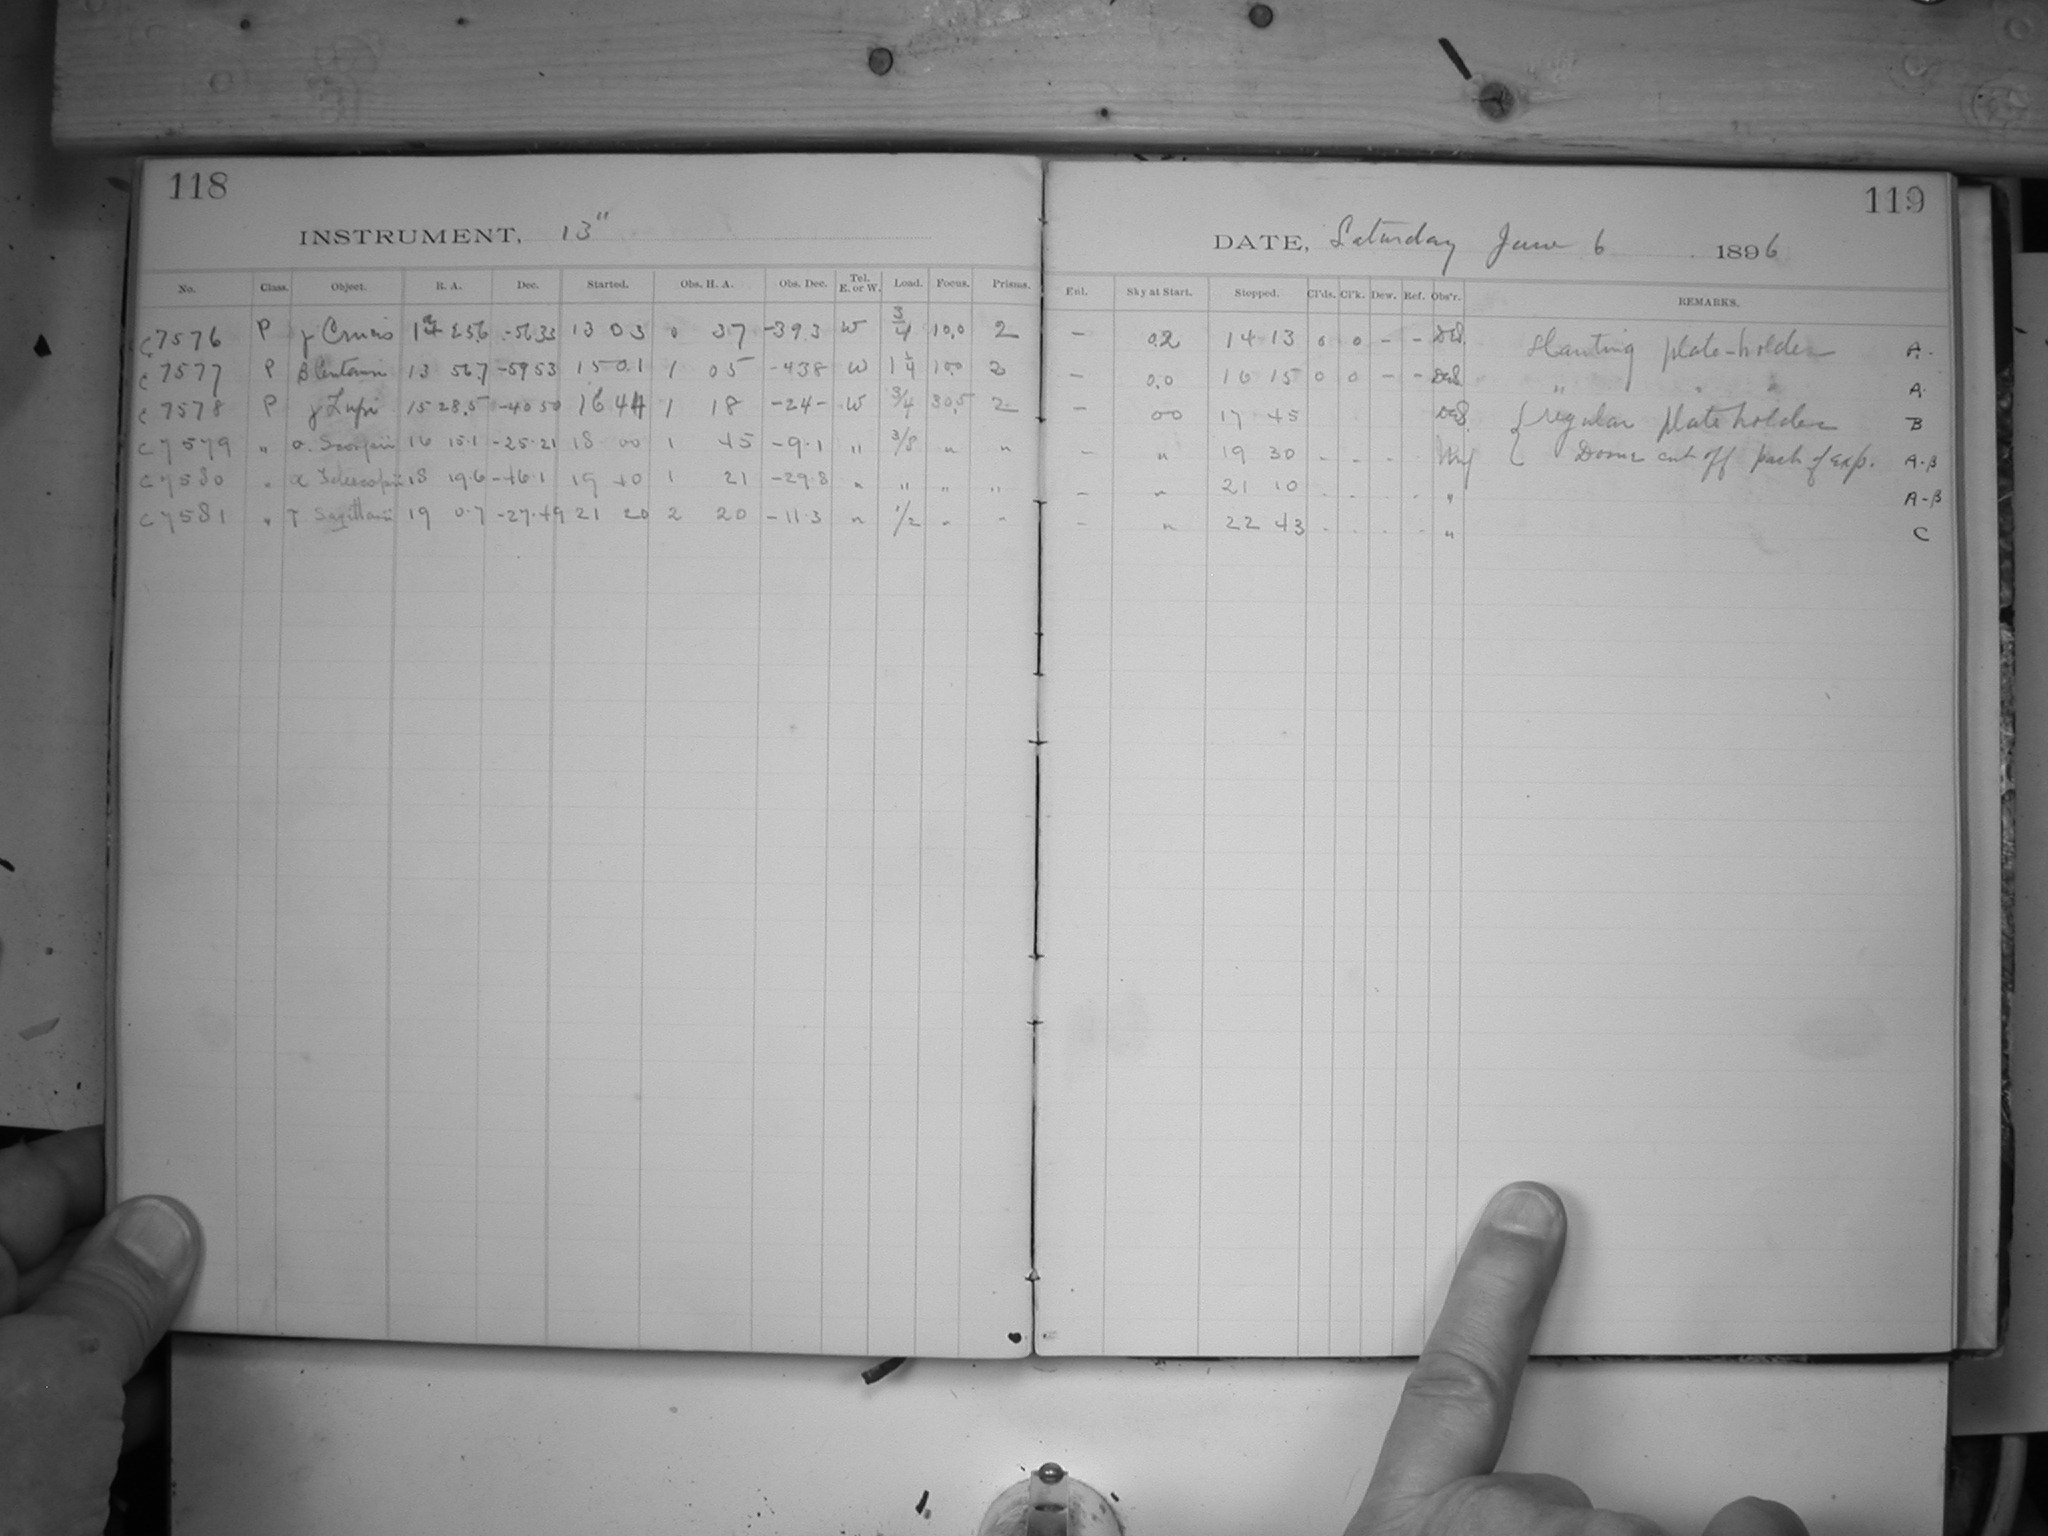 118
119
INSTRUMENT, 13"
DATE, Saturday June 6 1896
No. Class. Object. R. A. Dec. Started. Obs. H. A. Obs. Dec. Tel. E. or W. Load. Focus. Prisms. Enl. Sky at Start. Stopped. Cl'ds. Cl'k. Dew. Ref. Obs'r. REMARKS.
C 7576 P γ Crucis 12 25.6 -56 33 13 03 0 37 -39.3 W 3/4 10.0 2 - 0.2 14 13 0 0 - - Slanting plate-holder A.
C 7577 P β Centauri 13 56.7 -59 53 15 01 1 05 -43.8 W 1 1/4 10.0 2 - 0.0 16 15 0 0 - - " " " A.
C 7578 P γ Lupi 15 28.5 -40 50 16 44 1 18 -24- W 3/4 30.5 2 - 00 17 45 { regular plate holder B
C 7579 " σ. Scorpii 16 15.1 -25.21 18 00 1 45 -9.1 " 3/8 " " - " 19 30 - - - - Dome cut off part of exp. A-B
C 7580 " α Telescopii 18 19.6 -46.1 19 40 1 21 -29.8 " " " " - " 21 10 . . . . " A-B
C 7581 " τ Sagittarii 19 0.7 -27.49 21 20 2 20 -11.3 " 1/2 " " - " 22 43 . . . . " C